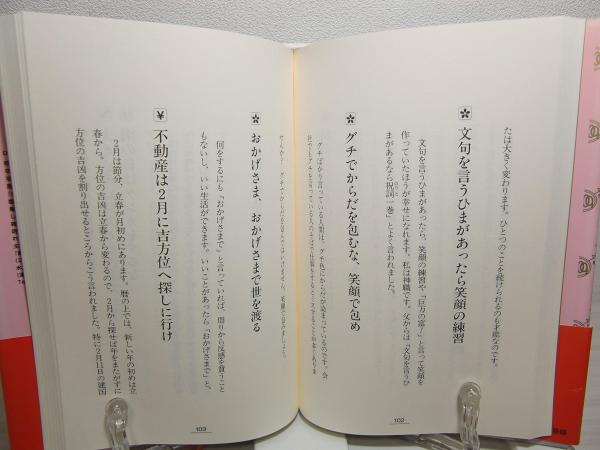 たは大きく変わります。ひとつのことを続けられるのも才能なのです。
文句を言うひまがあったら笑顔の練習
文句を言うひまがあったら、笑顔の練習や「巨万の富♪」と言って笑顔を
作っていたほうが幸せになれます。私は神職です。父からは「文句を言うひ
まがあるなら祝詞一巻」とよく言われました。
グチでからだを包むな、笑顔で包め
グチばかり言っている人間は、グチ色にからだが染まっているのです。会
102
おかげさま、おかげさまで世を渡る
何をするにも「おかげさまで」と言っていれば、周りから反感を負うこと
もないし、いい生活ができます。いいことがあったら「おかげさまで」と。
¥ 不動産は2月に吉方位へ探しに行け
2月は節分、立春が月初めにあります。暦の上では、新しい年の初めは立
春から。方位の吉凶は立春から変わるので、2月から探せば年をまたがずに
方位の吉凶を割り出せるところからこう言われました。特に2月11日の建国
103